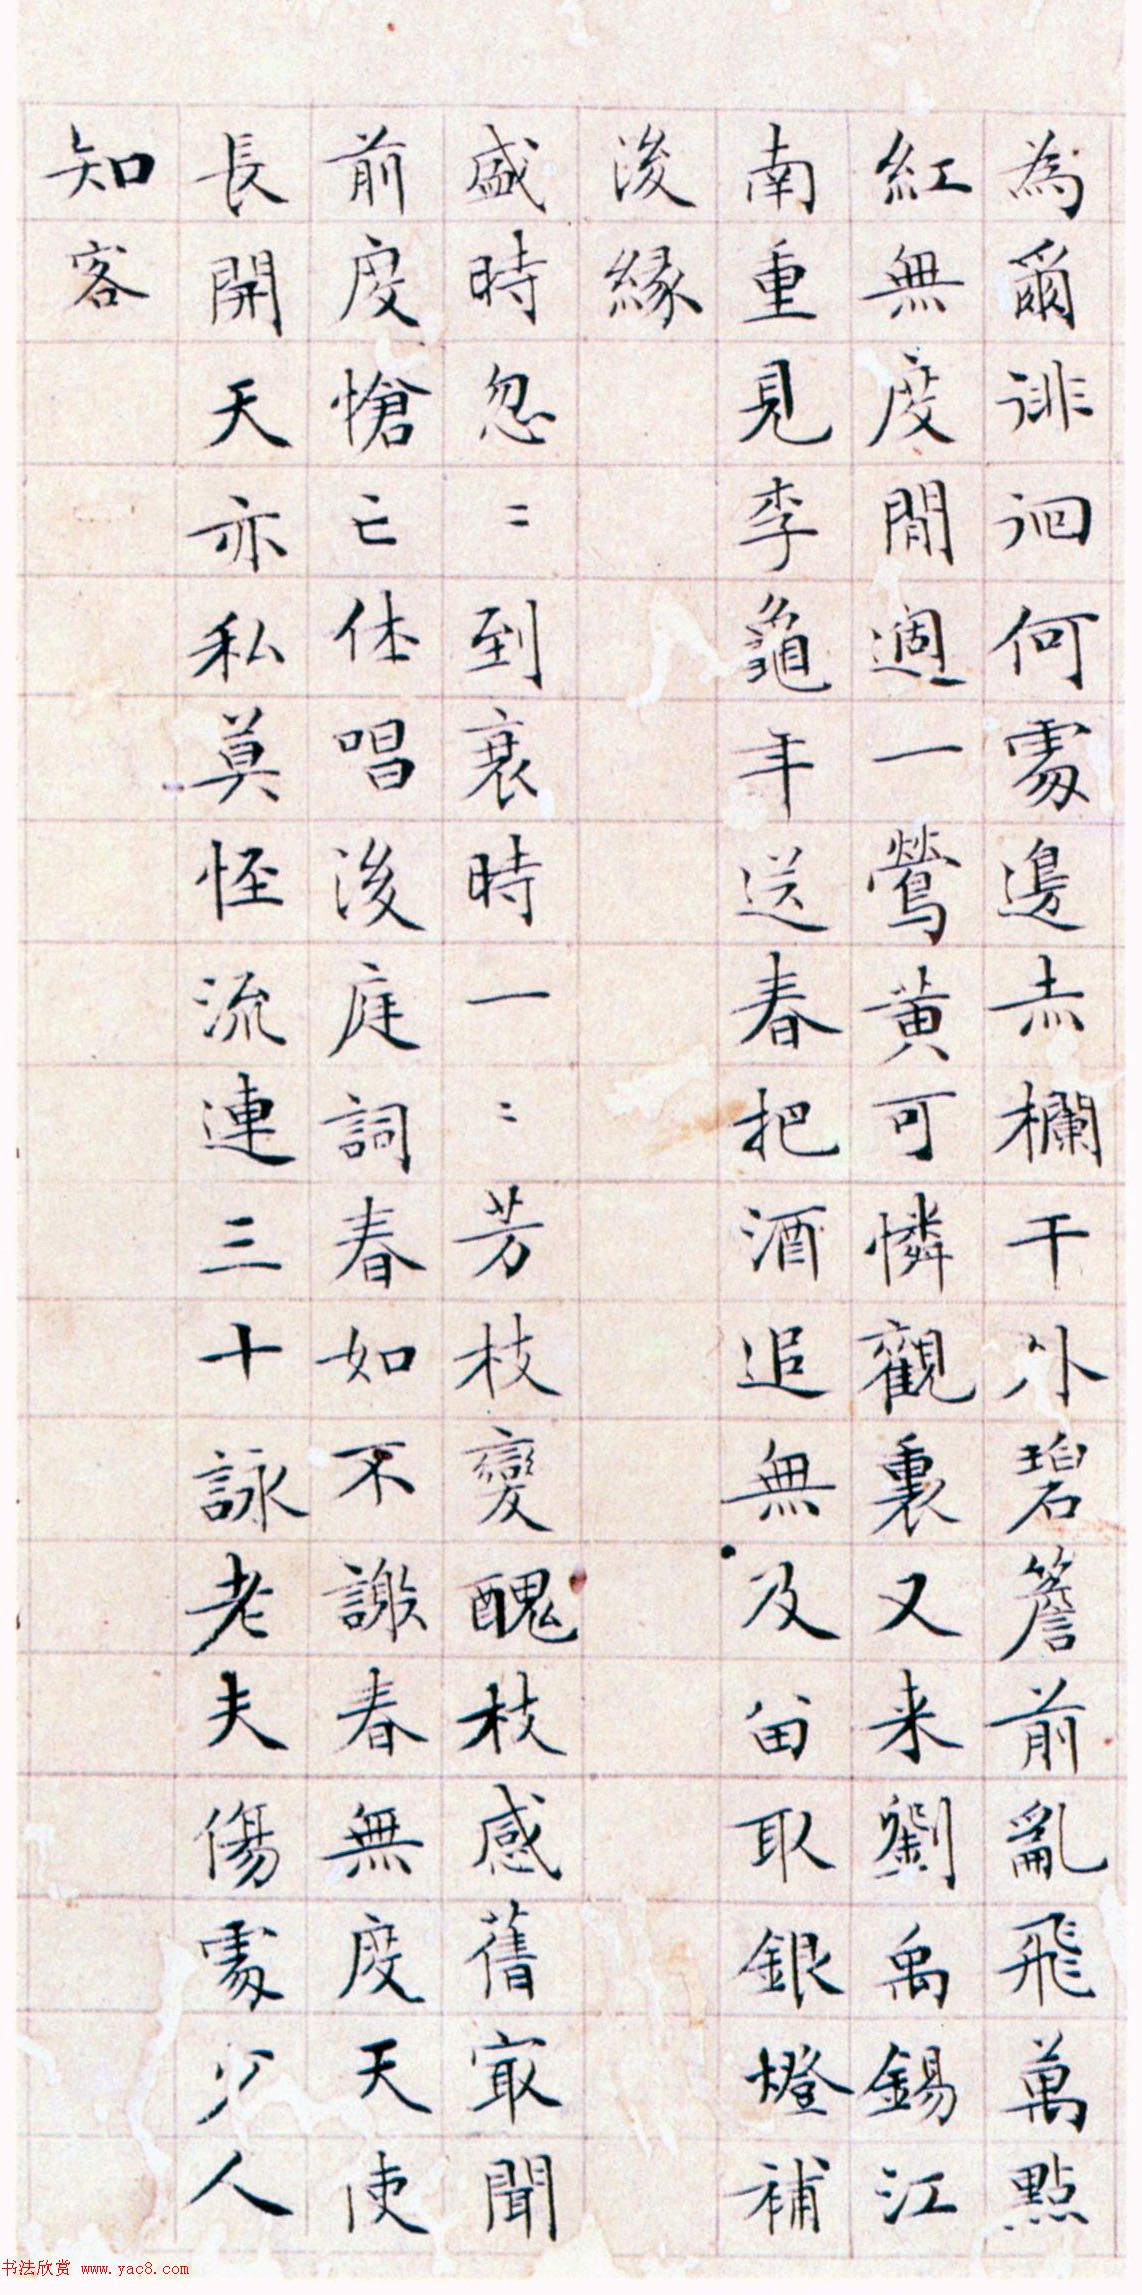 為爾徘徊何處邊赤欄干外碧簷前亂飛萬點
紅無度閒過一鶯黃可憐觀裏又来劉禹錫江
南重見李龜年送春把酒追無及留取銀燈補
後緣
盛時忽⺀到衰時一⺀芳枝變醜枝感舊最聞
前度愴亡休唱後庭詞春如不謝春無度天使
長開天亦私莫怪流連三十詠老夫傷處少人
知客
书法欣赏 www.yac8.com